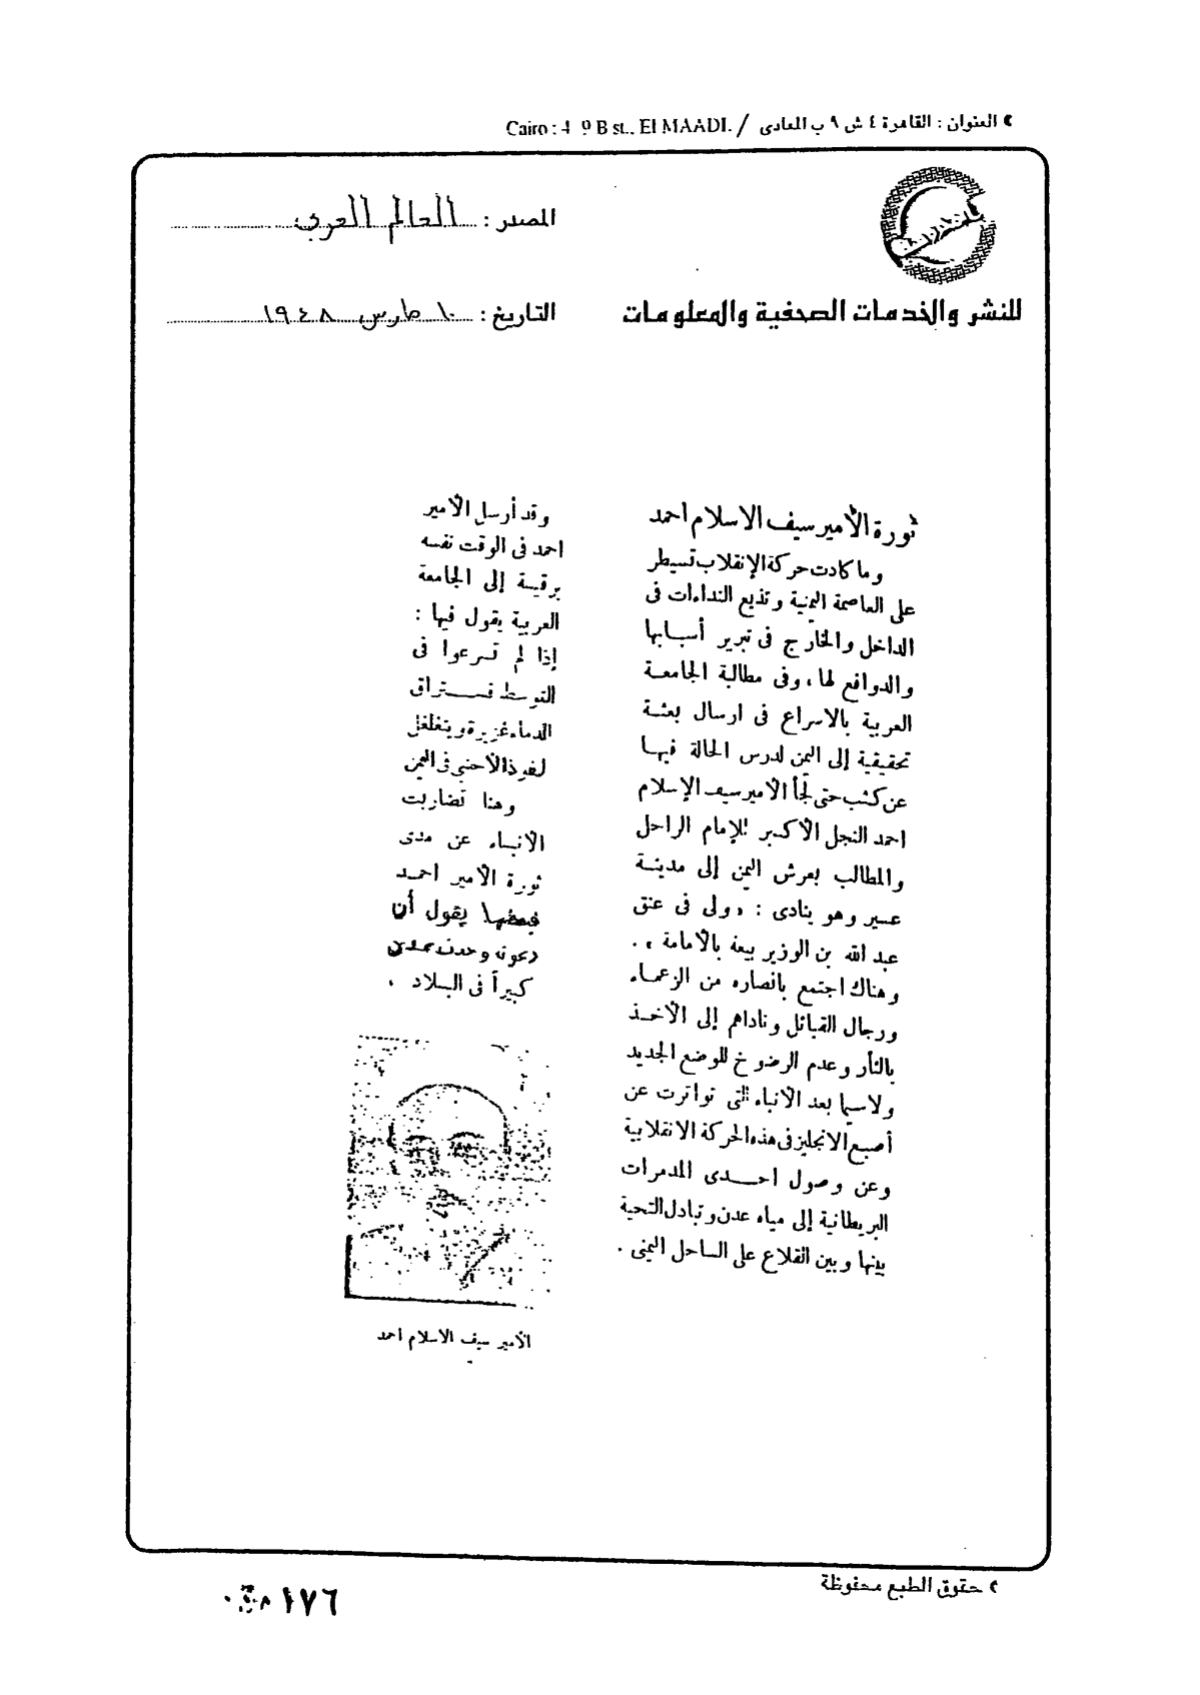 العنوان : القاهرة ٤ ش ٩ ب المعادى / Cairo : 4 9 B st., El MAADI.
المصدر : العالم العربى
للنشر والخدمات الصحفية والمعلومات
التاريخ : ١٠ مارس ١٩٤٨
ثورة الأمير سيف الاسلام احمد
وما كادت حركة الإنقلاب تسيطر
على العاصمة اليمنية وتذيع النداءات فى
الداخل والخارج فى تبرير أسبابها
والدوافع لها، وفى مطالبة الجامعة
العربية بالاسراع فى ارسال بعثة
تحقيقية إلى اليمن لدرس الحالة فيها
عن كثب حتى لجأ الأمير سيف الإسلام
احمد النجل الأكبر للإمام الراحل
والمطالب بعرش اليمن إلى مدينة
عسير وهو ينادى : ولى فى عنق
عبد الله بن الوزير بيعة بالأمامة .
وهناك اجتمع بانصاره من الزعماء
ورجال القبائل وناداهم إلى الأخذ
بالثأر وعدم الرضوخ للوضع الجديد
ولاسيما بعد الأنباء التى تواترت عن
أصبع الانجليز فى هذه الحركة الانقلابية
وعن وصول احدى المدمرات
البريطانية إلى مياه عدن وتبادل التحية
بينها وبين القلاع على الساحل اليمنى .
وقد أرسل الأمير
احمد فى الوقت نفسه
برقية إلى الجامعة
العربية يقول فيها :
إذا لم تسرعوا فى
التوسط فستراق
الدماء غزيرة ويتغلغل
لنفوذ الأجنبى فى اليمن
وهنا تضاربت
الانباء عن مدى
ثورة الأمير احمد
فبعضها يقول أن
دعوته وجدت
كبيراً فى البلاد .
الأمير سيف الاسلام احمد
حقوق الطبع محفوظة
١٧٦